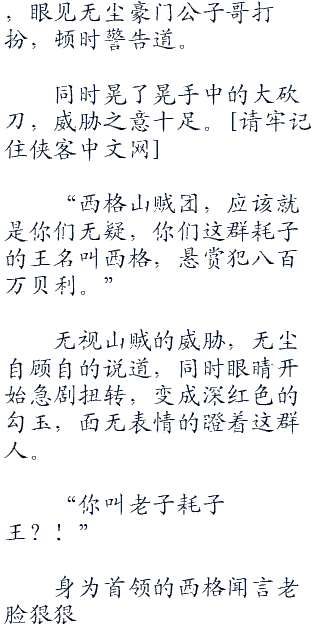 ，眼见无尘豪门公子哥打
扮，顿时警告道。
同时晃了晃手中的大砍
刀，威胁之意十足。[请牢记
住侠客中文网]
“西格山贼团，应该就
是你们无疑，你们这群耗子
的王名叫西格，悬赏犯八百
万贝利。”
无视山贼的威胁，无尘
自顾自的说道，同时眼睛开
始急剧扭转，变成深红色的
勾玉，面无表情的瞪着这群
人。
“你叫老子耗子
王？！”
身为首领的西格闻言老
脸狠狠